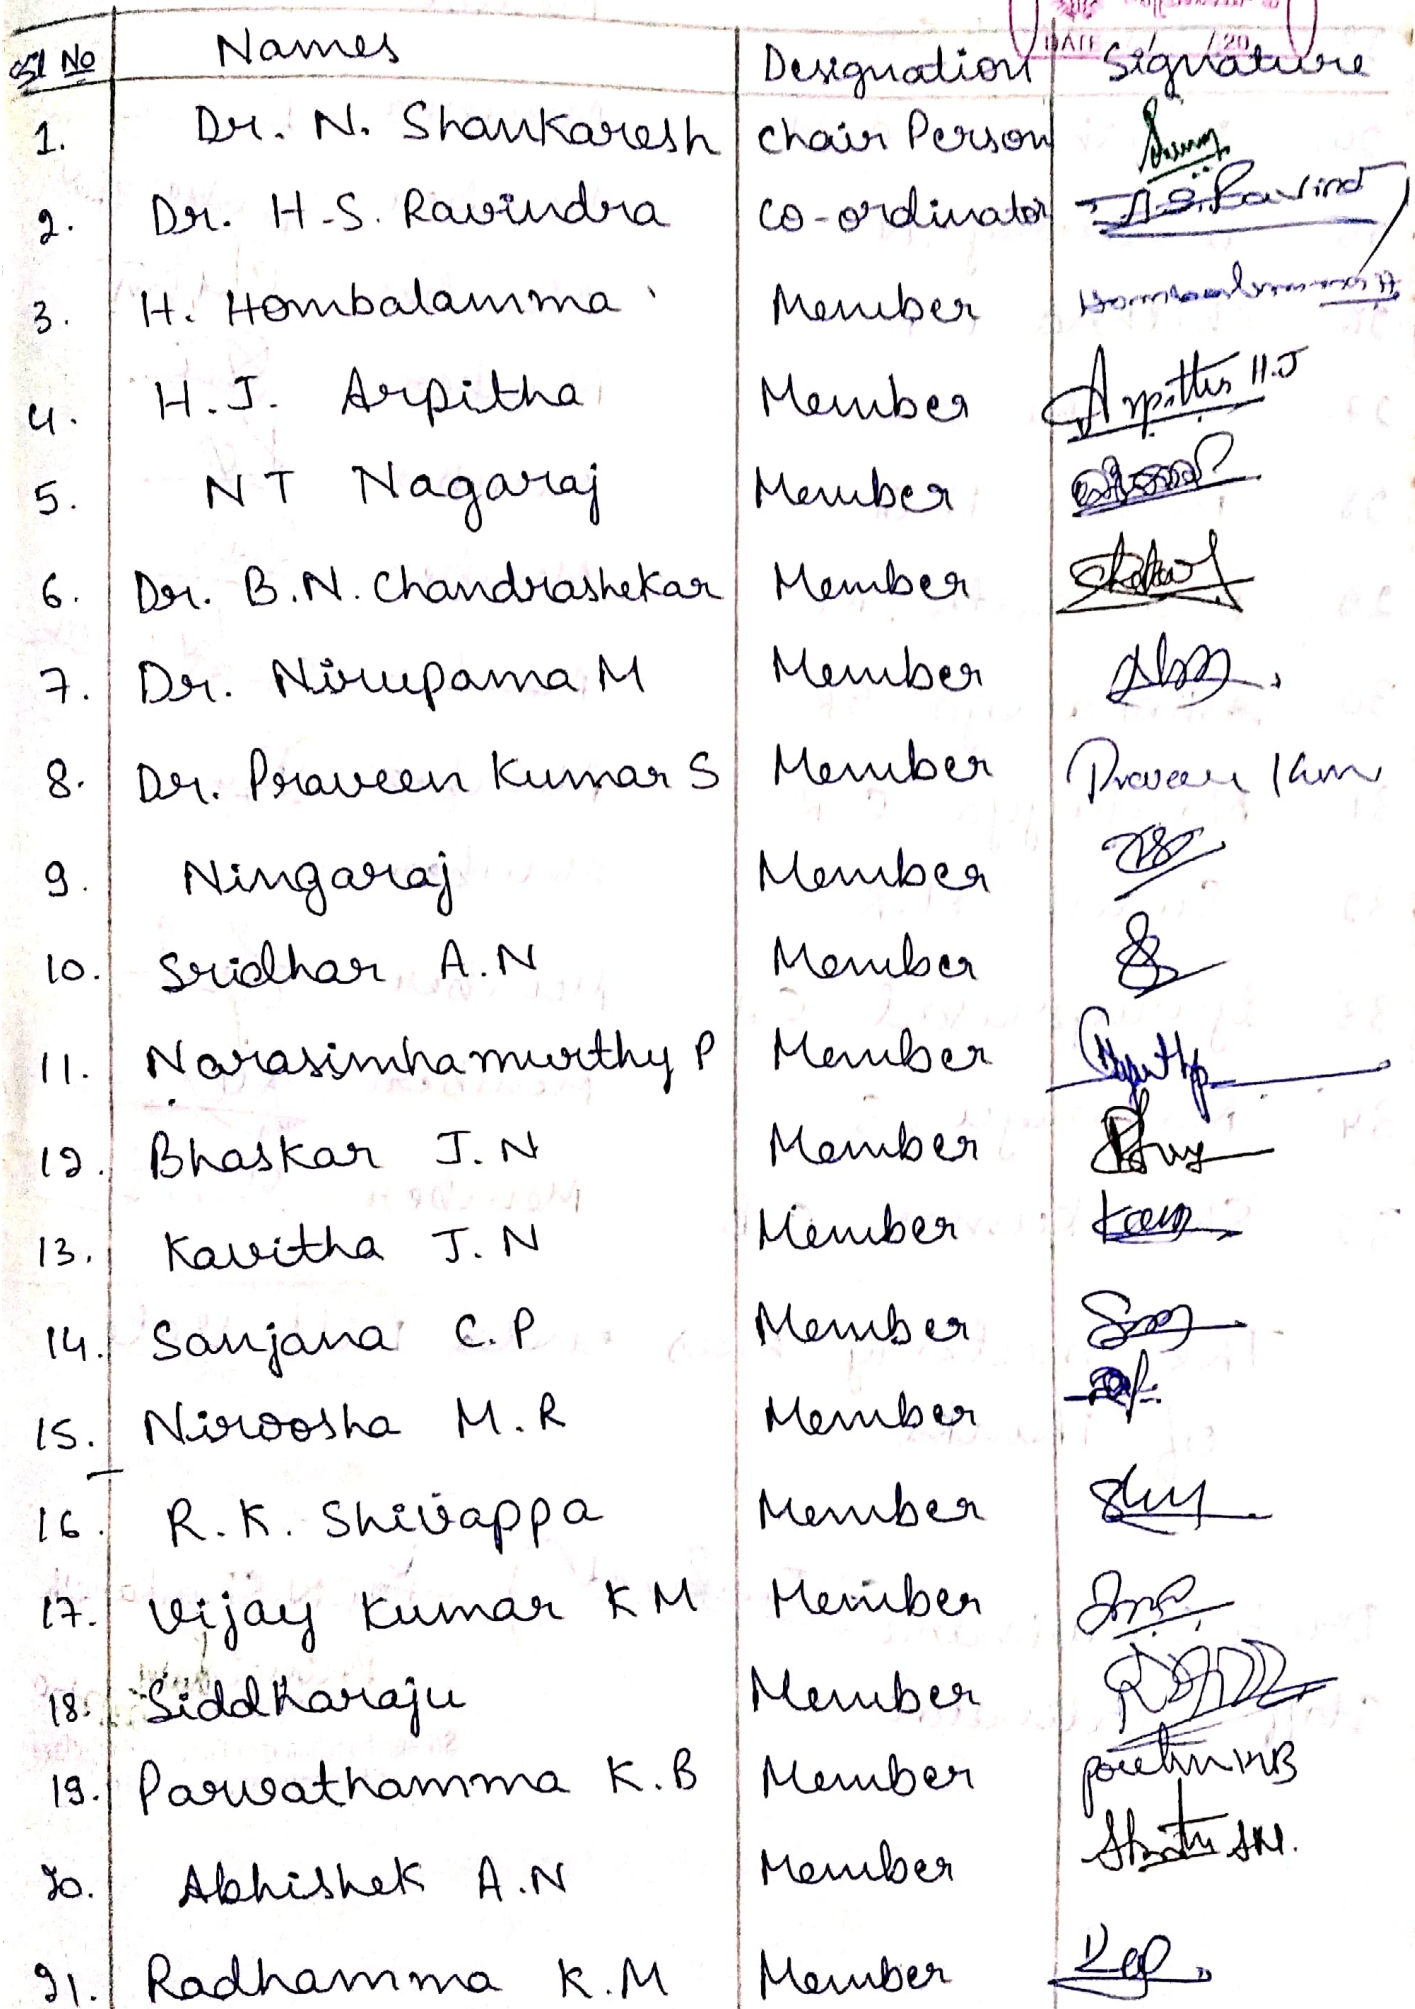 DATE / / 20
Sl No Names Designation Signature
1. Dr. N. Shankaresh Chair Person
2. Dr. H.S. Ravindra Co-ordinator H.S. Ravind
3. H. Hombalamma Member Hombalamma H
4. H.J. Arpitha Member Arpitha H.J
5. NT Nagaraj Member
6. Dr. B.N. Chandrashekar Member
7. Dr. Nirupama M Member
8. Dr. Praveen Kumar S Member Praveen Kum
9. Ningaraj Member
10. Sridhar A.N Member
11. Narasimhamurthy P Member
12. Bhaskar J.N Member
13. Kavitha J.N Member
14. Sanjana C.P Member
15. Niroosha M.R Member
16. R.K. Shivappa Member
17. Vijay Kumar K M Member
18. Siddharaju Member
19. Parvathamma K.B Member
20. Abhishek A.N Member
21. Radhamma K.M Member